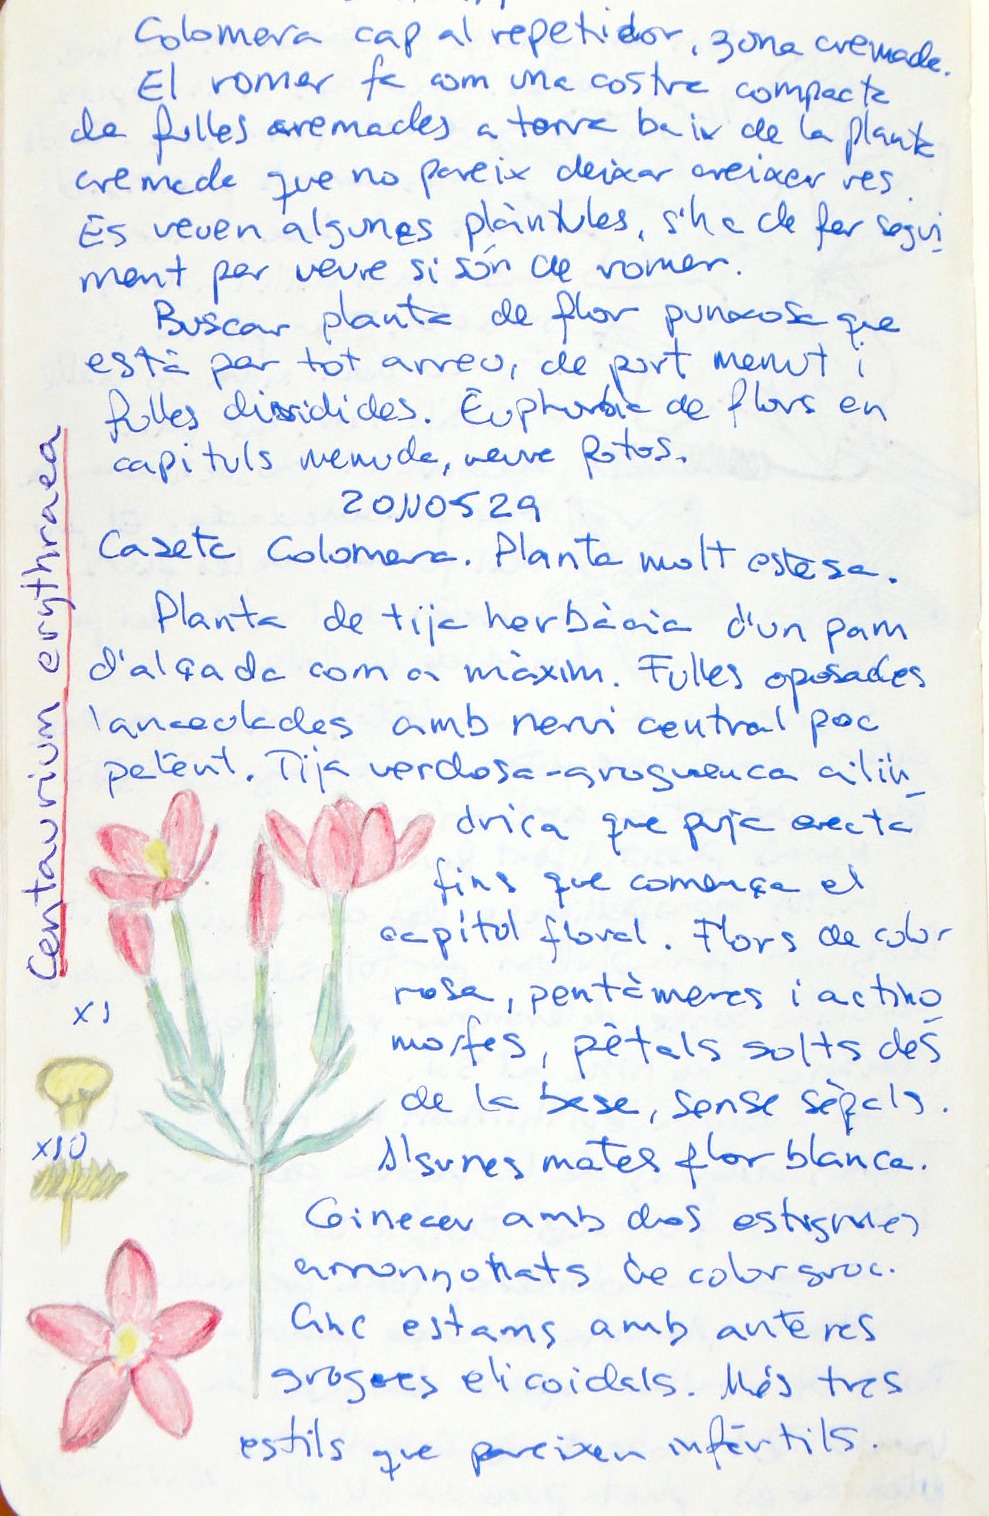 Colomera cap al repetidor, zona cremada.
El romer fa com una costra compacta
de fulles cremades a terra baix de la planta
cremada que no pareix deixar creixer res.
Es veuen algunes plàntules, s'ha de fer segui
ment per veure si són de romer.
Buscar planta de flor punxosa que
està per tot arreu, de port menut i
fulles dividides. Euphorbia de flors en
capituls menuda, veure fotos.
20110529
Caseta Colomera. Planta molt estesa.
Planta de tija herbàcia d'un pam
d'alçada com a màxim. Fulles oposades
lanceolades amb nervi central poc
patent. Tija verdosa-groguenca cilín
drica que puja erecta
fins que comença el
capítol floral. Flors de color
rosa, pentàmeres i actino
morfes, pètals solts des
de la base, sense sèpals.
Algunes mates flor blanca.
Gineceu amb dos estigmes
arronyonats de color groc.
Cinc estams amb anteres
grogues elicoidals. Més tres
estils que pareixen infèrtils.
Centaurium erythraea
x1
x10